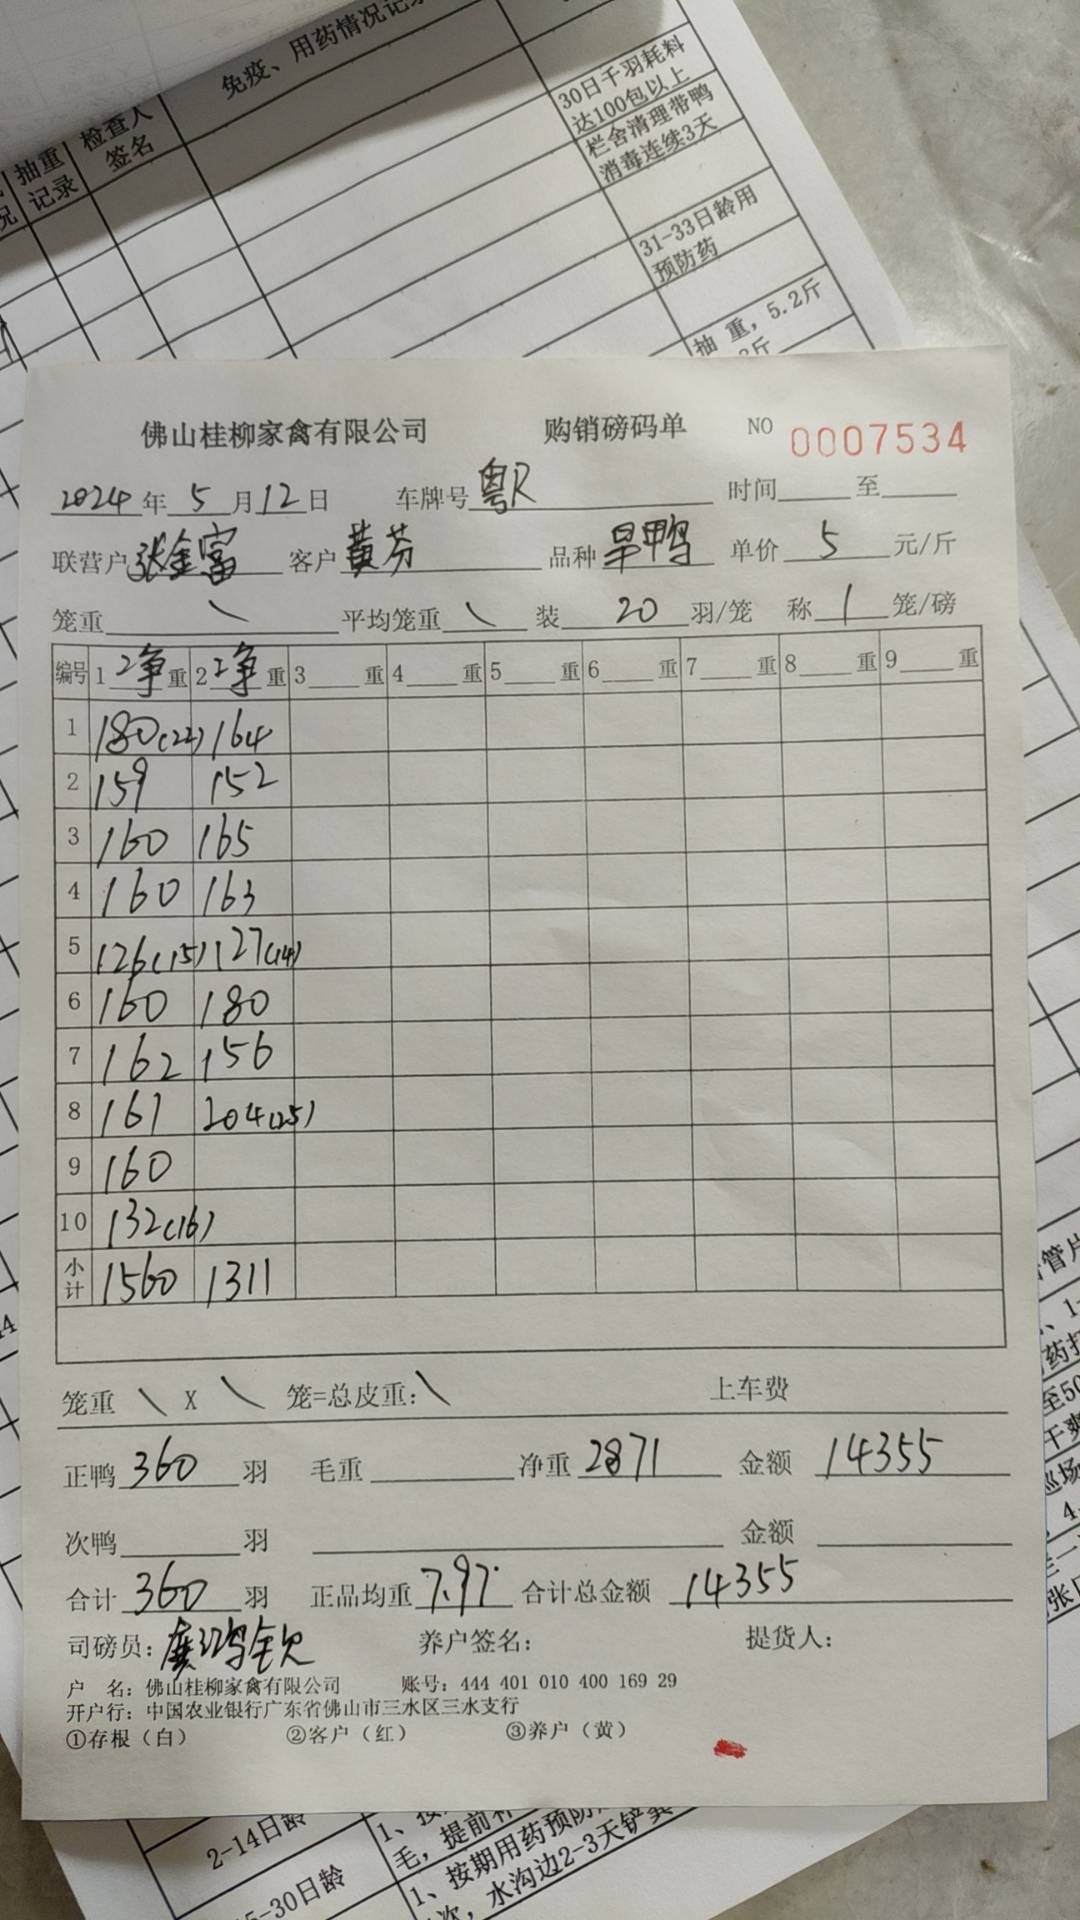 免疫、用药情况记录
抽重
记录
检查人
签名
30日千羽耗料
达100包以上
栏舍清理带鸭
消毒连续3天
31-33日龄用
预防药
抽 重，5.2斤
佛山桂柳家禽有限公司 购销磅码单 NO 0007534
2024年 5月12日 车牌号 粤R 时间 至
联营户 张金富 客户 黄芬 品种 旱鸭 单价 5 元/斤
笼重 \ 平均笼重 \ 装 20 羽/笼 称 1 笼/磅
编号 1 净 重 2 净 重 3 重 4 重 5 重 6 重 7 重 8 重 9 重
1 180(22) 164
2 159 152
3 160 165
4 160 163
5 126(15) 127(14)
6 160 180
7 162 156
8 161 204(25)
9 160
10 132(16)
小计 1560 1311
笼重 \ X \ 笼=总皮重：\ 上车费
正鸭 360 羽 毛重 净重 2871 金额 14355
次鸭 羽 金额
合计 360 羽 正品均重 7.97 合计总金额 14355
司磅员： 养户签名： 提货人：
户 名：佛山桂柳家禽有限公司 账号：444 401 010 400 169 29
开户行：中国农业银行广东省佛山市三水区三水支行
①存根（白） ②客户（红） ③养户（黄）
2-14日龄
毛，提前
-30日龄
1、按期用药预防
次，水沟边2-3天铲粪